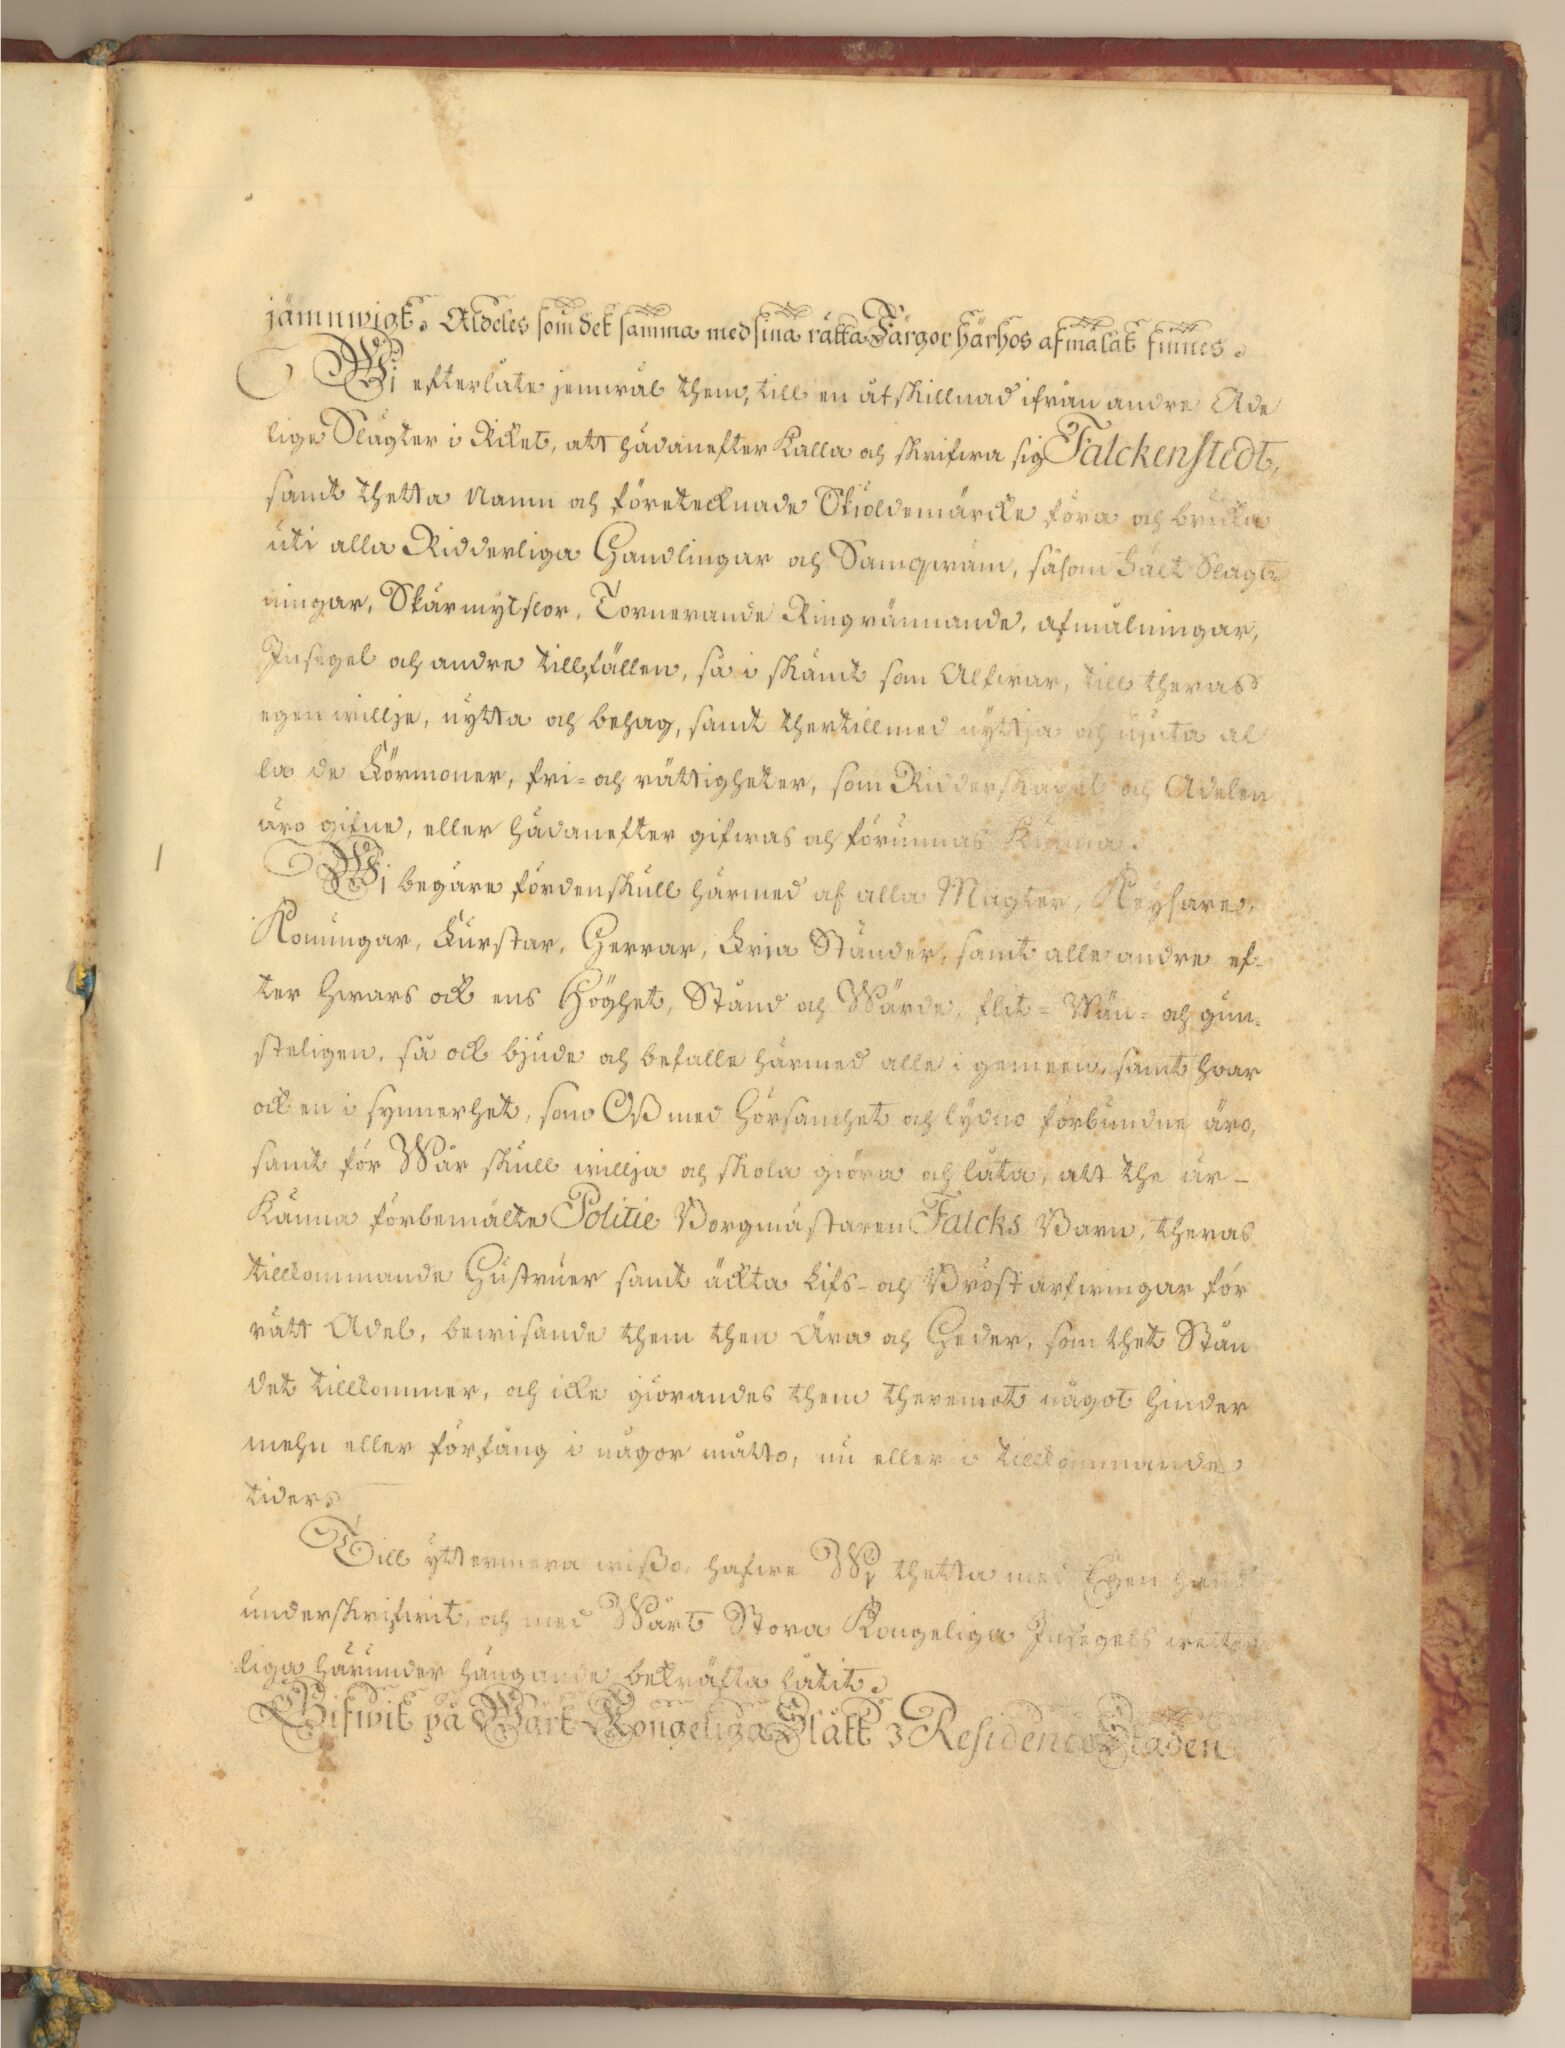 jämnwigt. Aldeles som det samma med sina rätta Färgor härhos afmålat finnes.
Wi efterlåte jemwäl them, till en åtskillnad ifrån andre Ade
lige Slägter i Riket, att hädanefter Kalla och skrifwa sig Falckenstedt,
samt thetta Namn och företecknade Skiöldemärcke föra och bruka
uti alla Ridderliga Handlingar och Samqwäm, såsom Fält Slagt
ningar, Skärmytslor, Tornerande Ringrännande, afmålningar,
Insegel och andre tillfällen, så i skämt som Alfwar, till theras
egen willje, nytta och behag, samt thertillmed nyttja och njuta al
la de Förmoner, fri- och rättigheter, som Ridderskapet och Adelen
äro gifne, eller hädanefter gifwas och förunnas Kunna.
Wi begäre fördenskull härmed af alla Magter, Keysare,
Konungar, Furstar, Herrar, Fria Ständer, samt alle andre ef-
ter hwars ock ens Höghet, Stånd och Wärde, flit- Wän- och gun-
steligen, så ock bjude och befalle härmed alle i gemeen, samt hvar
ock en i synnerhet, som Oß med hörsamhet och lydno förbundne äro,
samt för Wår skull willja och skola giöra och låta, att the är-
Känna förbemälte Politie Borgmästaren Falcks Barn, theras
tillkommande Hustruer samt äckta Lifs- och Bröst arfwingar för
rätt Adel, bewisande them then Ära och Heder, som thet Stån
det tillkommer, och icke giörandes them theremot något hinder
mehn eller förfång i någor måtto, nu eller i tillkommande
tider.
Till yttermera wißo, hafwe Wi thetta med Egen hand
underskrifwit, och med Wårt Stora Kongeliga Insegels
liga härunder hängande bekräfta låtit.
Gifwit på Wårt Kongeliga Slått i Residence Staden